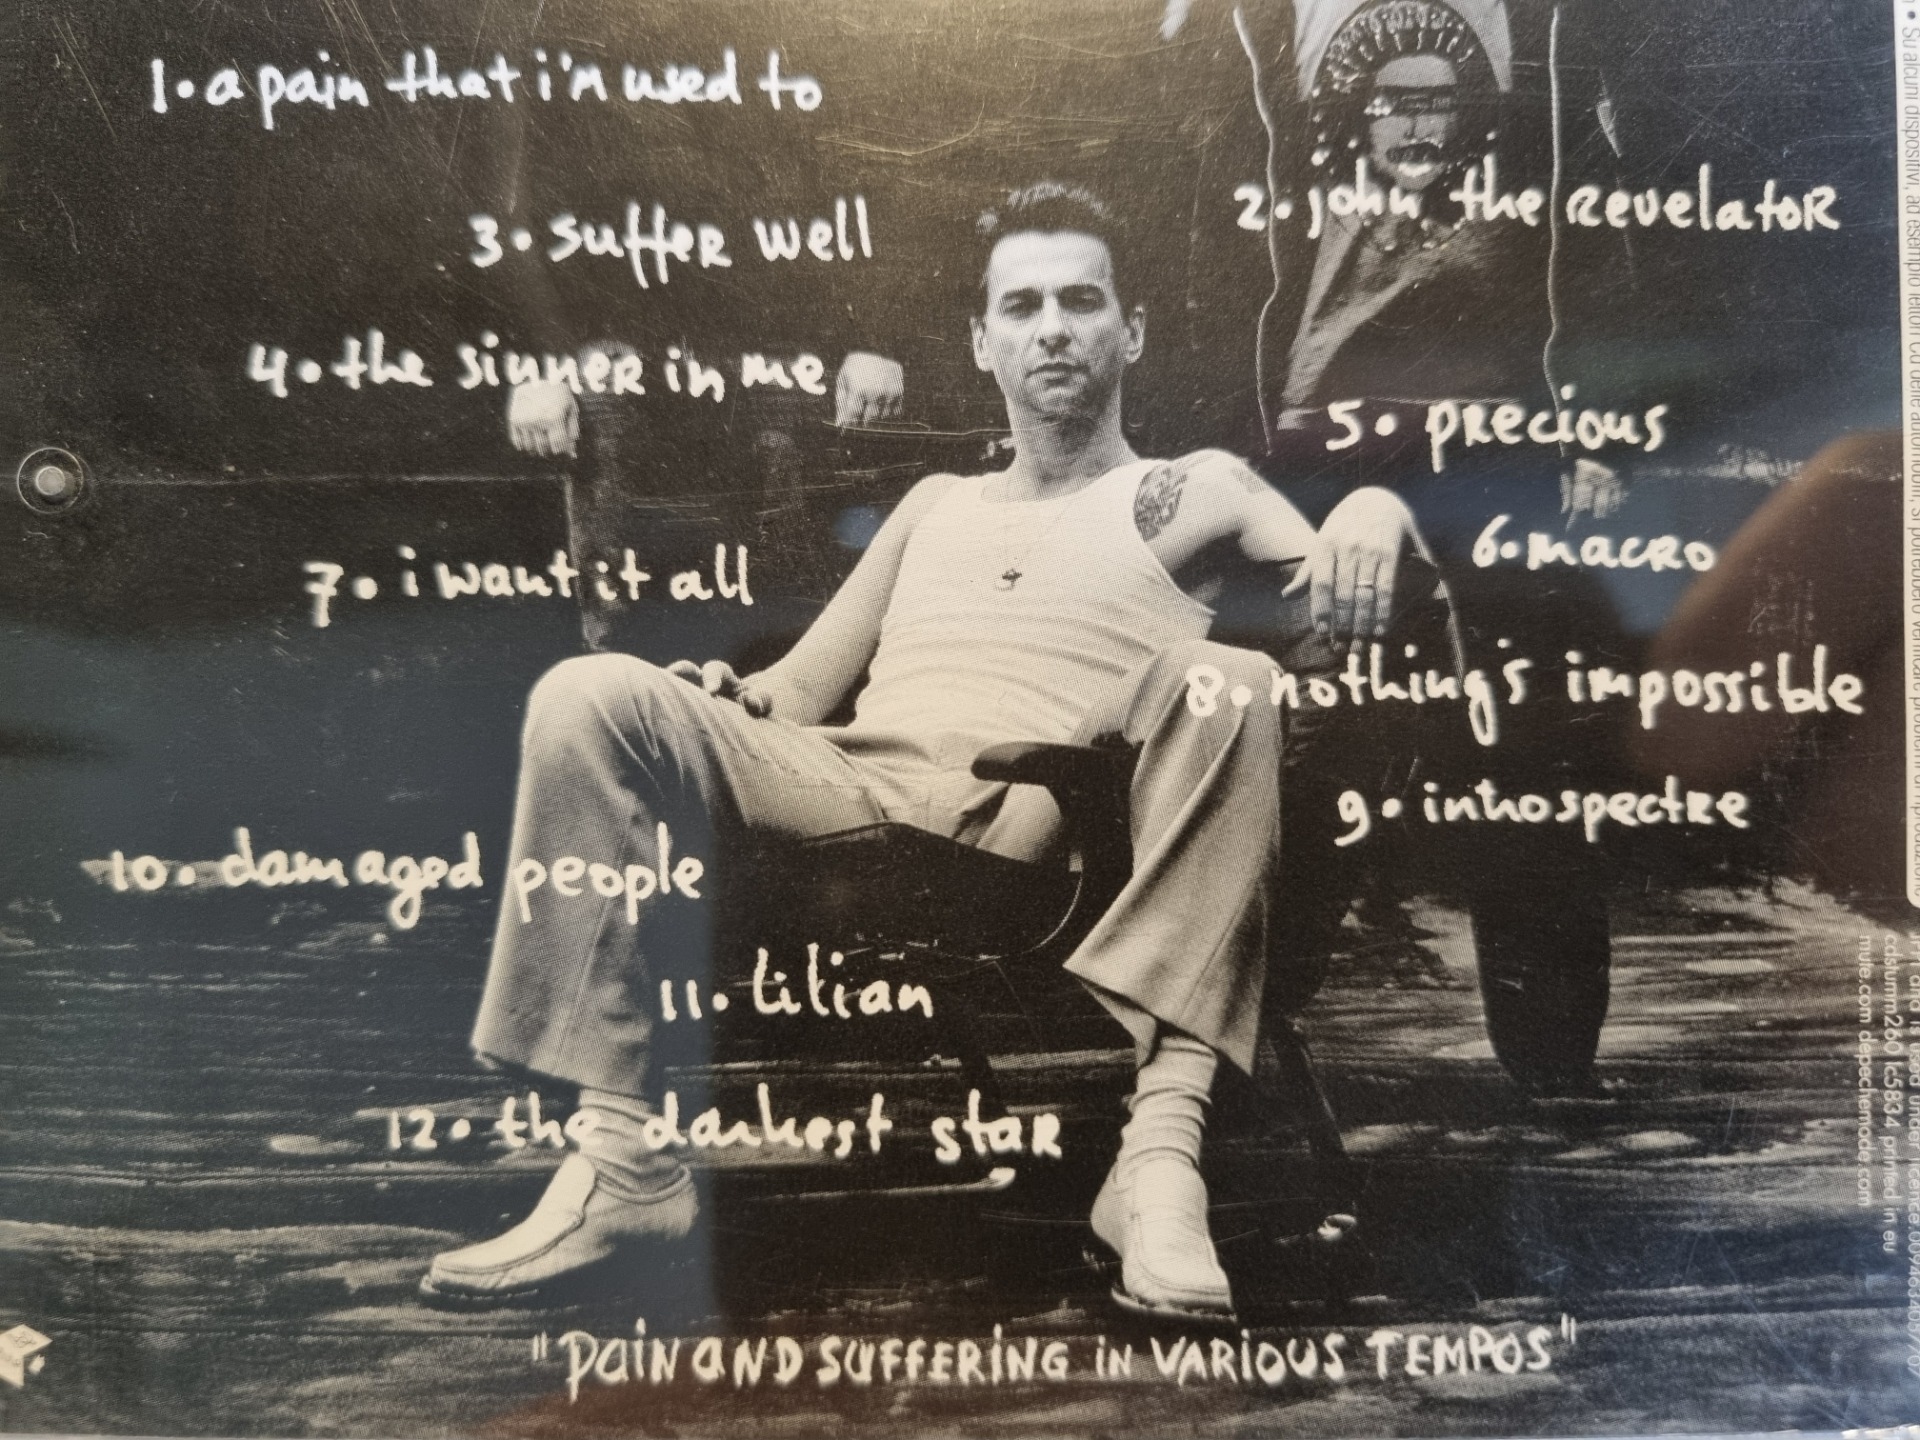 1. a pain that i'm used to
2. john the revelator
3. suffer well
4. the sinner in me
5. precious
6. macro
7. i want it all
8. nothing's impossible
9. introspectre
10. damaged people
11. lilian
12. the darkest star
"PAIN AND SUFFERING IN VARIOUS TEMPOS"
Su alcuni dispositivi, ad esempio lettori Cd delle automobili, si potrebbero verificare problemi di riproduzione
and is used under licence.
cdstumm260 lc5834 printed in eu
mute.com depechemode.com